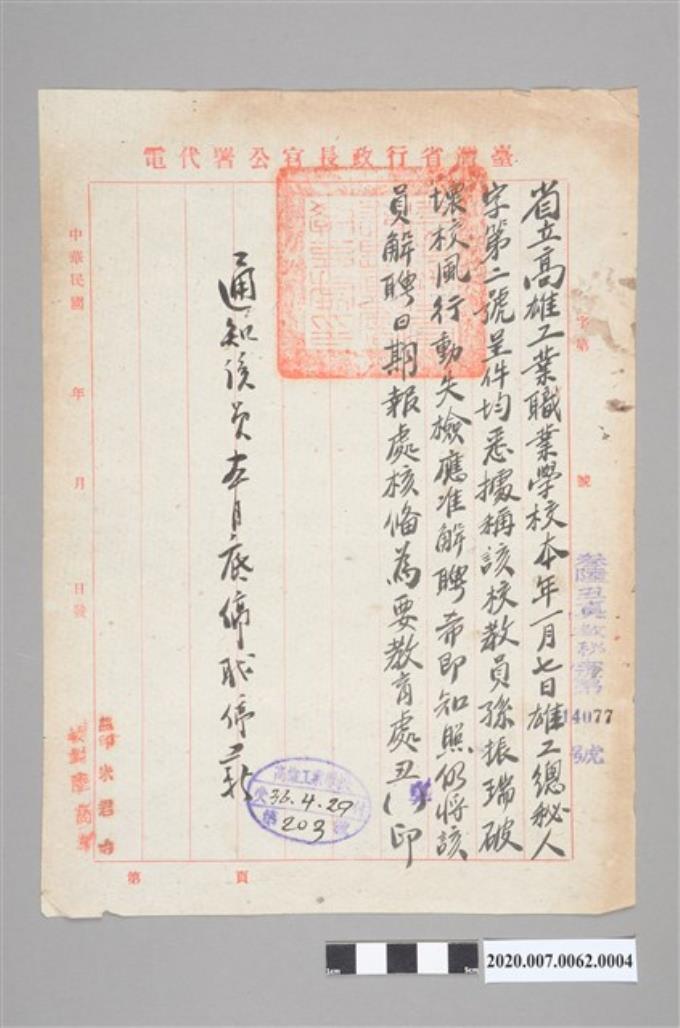 臺灣省行政長官公署代電
字第
號
叁陸丑
14077
號
省立高雄工業職業學校本年一月七日雄工總秘人
字第二號呈件均悉據稱該校教員孫振瑞破
壞校風行動失檢應准解聘希即知照仍將該
員解聘日期報處核備為要教育處丑( )印
通知該員本月底停職停薪
高雄工業學校
收 36.4.29 付
第 203 號
中華民國 年 月 日發
監印
校對
第 頁
1cm
5cm
2020.007.0062.0004